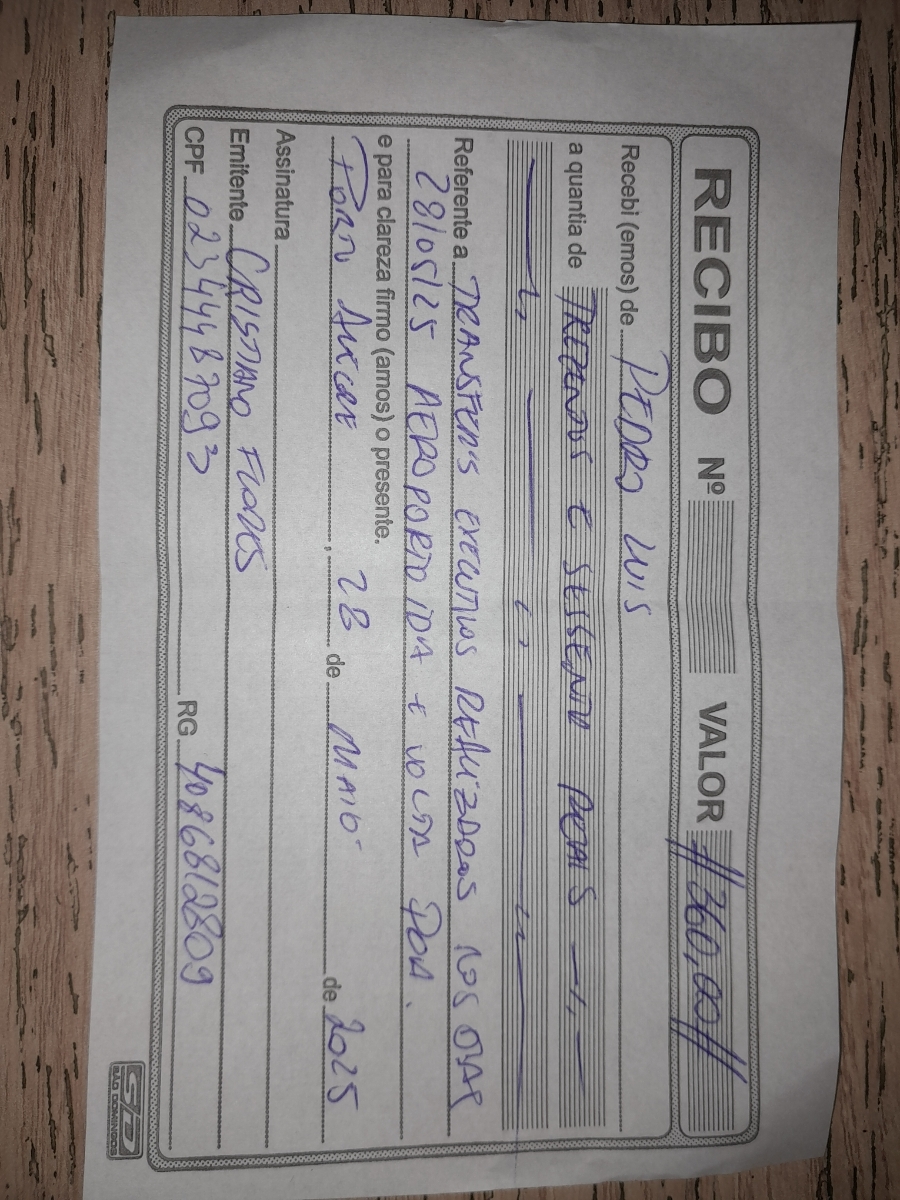 RECIBO Nº VALOR //360,00//
Recebi (emos) de PEDRO LUIS
a quantia de TREZENTOS E SESSENTA REAIS
Referente a TRANSFERS EXECUTIVOS REALIZADOS NOS DIAS
28/05/25 AEROPORTO IDA E VOLTA POA.
e para clareza firmo (amos) o presente.
PORTO ALEGRE, 28 de MAIO de 2025
Assinatura
Emitente CRISTIANO FLORES
CPF 02344487093 RG 4086812809
SD
SÃO DOMINGOS